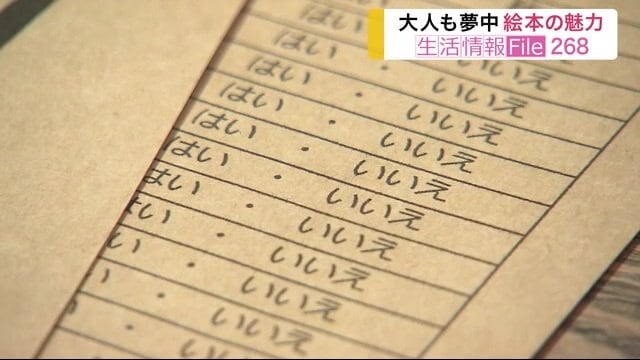 大人も夢中 絵本の魅力
生活情報File 268
はい ・ いいえ
はい ・ いいえ
はい ・ いいえ
はい ・ いいえ
はい ・ いいえ
はい ・ いいえ
はい ・ いいえ
はい ・ いいえ
い ・ いいえ
・ いいえ
・ いいえ